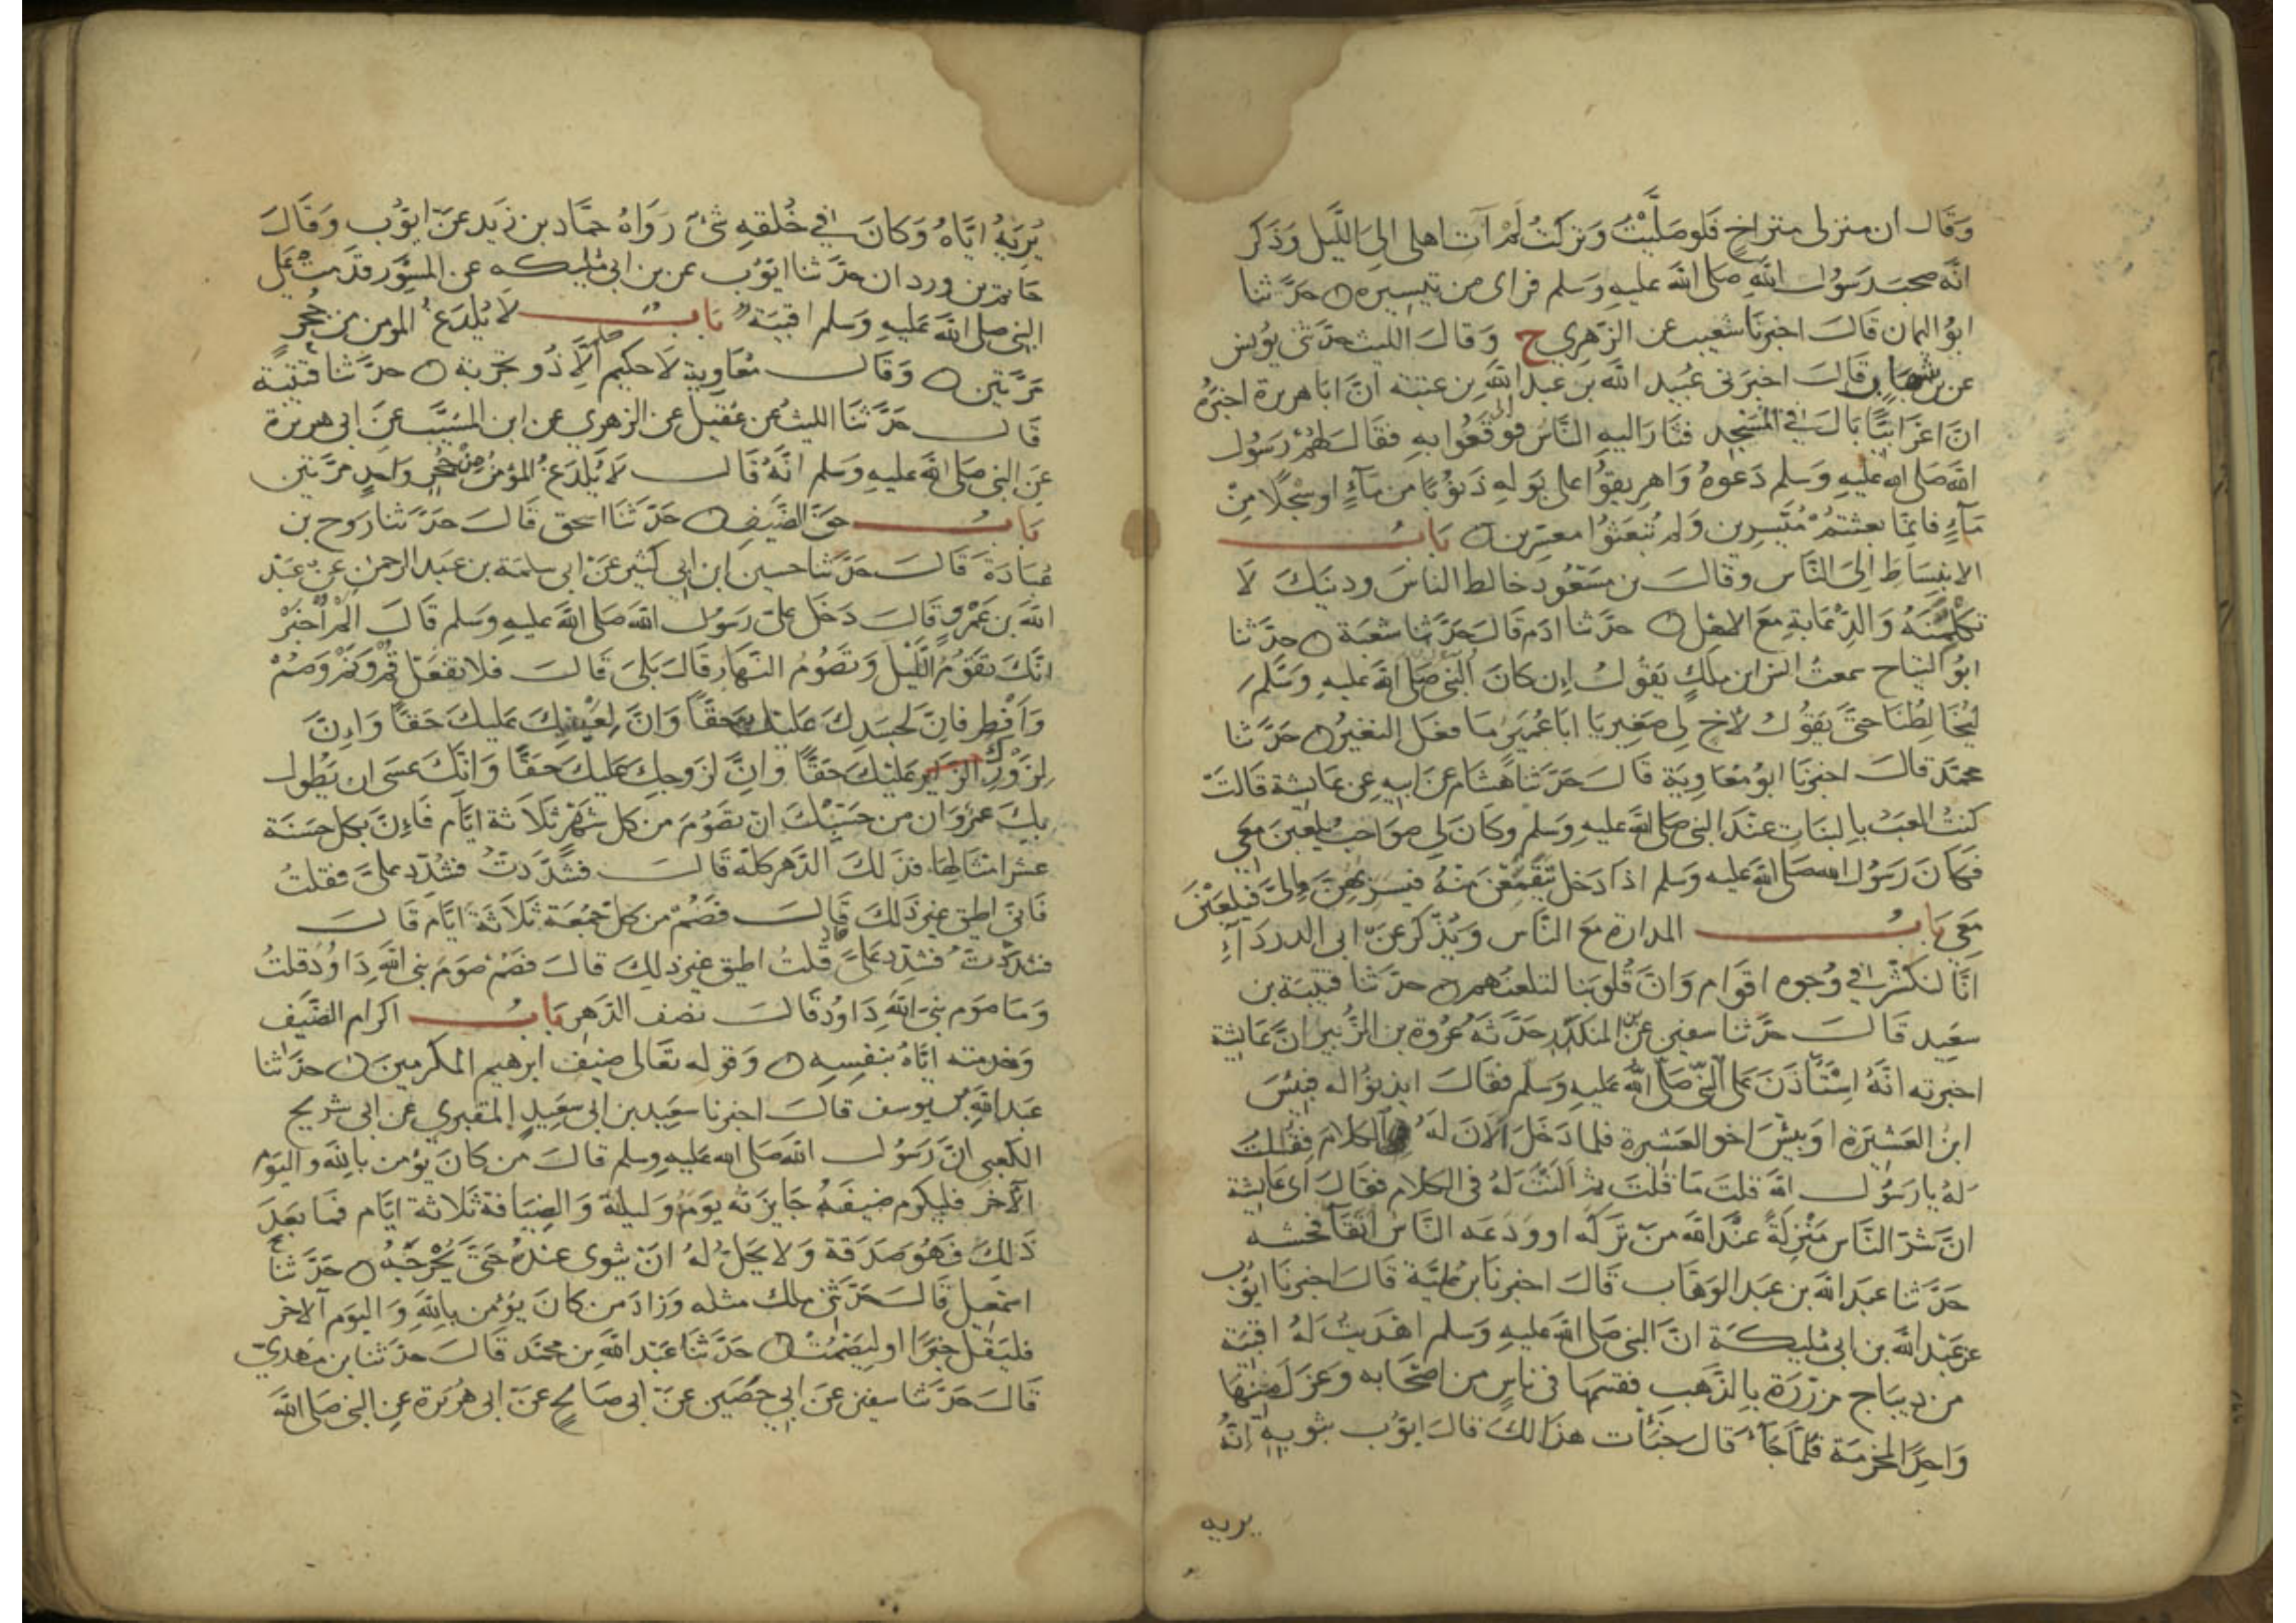 وَقَال ان منزلى متراخ فلو صَلَّيْتُ وَتركتُ لَمْ آت اهلى الى اللَّيل وَذكر
انَّه صحب رَسُول اللَّهِ صَلى اللَّه عليهِ وَسَلم فراى من تيسيره حدَّثنا
ابوُ اليمان قَالَ اخبرنا شعيب عن الزهري ح وَقالَ الليث حدّثنى يونس
عن بن شهاب قَالَ اخبرَنى عُبَيد اللَّه بن عبد اللَّهِ بن عتبة انَّ ابَا هريرة اخبرَهُ
انَّ اعْرَابيًّا بَالَ في المَسْجِد فثارَ اليهِ النَّاسُ ليقعُوا بهِ فقَالَ لَهُمْ رَسُول
اللَّه صَلى اللَّه عليهِ وَسَلم دَعوهُ وَاهريقوُا على بَولهِ ذَنوُبًا من مَآءٍ او سَجْلًا مِنْ
مَآءٍ فانّمَا بعثتمْ مُيَسِّرين وَلم تُبعَثوُا معسّرين بَابُ
الانبِسَاطِ اِلىَ النَّاس وقالَ بن مسَعُود خالط الناسَ ودينَكَ لَا
تكْلِمَنَّهُ وَالدِّعَابةِ مَعَ الاهْل حدَّثنا ادم قَالَ حَدَّثنا شعْبَة حدَّثنا
ابوُ التياح سمعتُ انس ابن ملكٍ يَقوُلُ اِن كانَ النَّبى صَلى اللَّه عليهِ وَسَلم
ليُخَالِطُنا حَتّىَ يَقوُلُ لأخٍ لى صَغير يَا ابَا عُمَيَر مَا فعَل النغيرُ حَدَّثنا
محمَّد قالَ اخبرَنَا ابوُ مُعَاوِيَة قَالَ حَدَّثنا هشام عَن ابيهِ عن عَايشة قالَتْ
كنتُ العبُ بالبنَات عنْدَ النبى صَلى اللَّه عليهِ وَسَلم وكانَ لى صَوَاحبُ يلعَبنَ مَعى
فَكانَ رَسُول اللَّه صَلى اللَّه عَليهِ وسَلم اذا دَخل يَتَقَمَّعْنَ منْهُ فيُسَرِّبُهُنَّ اِلىَّ فيلعَبْنَ
مَعِي بَابُ المدَارة مع النَّاس وَيُذْكَر عَن ابى الدردَآءِ
انَّا لنَكشرُ في وُجوه اقوَام وَانَّ قُلوبَنا لتلعنُهم حدَّثنا قتيبَة بن
سعَيد قَالَ حدَّثنا سفين عن بن المنكدر حَدَّثهُ عُرْوة بن الزُّبير انَّ عَايشة
اخبرَته انَّهُ اسْتَأذَنَ عَلى النَّبىِّ صَلى اللَّه عَليهِ وَسَلَم فقَالَ ايذنوُا له فبِئسَ
ابنُ العَشيرَة اوَ بيسَ اخو العَشيرة فلما دَخَل اَلانَ لَهُ الكلامَ فقلتُ
لَهُ يا رَسُول اللَّه قلتَ مَا قُلتَ ثم اَلنْتَ لَهُ فى الكلام فقالَ اى عَايشة
انَّ شرَّ النَّاس مَنْزِلةً عنْدَ اللَّه مَن تركَه او وَدَعَه النَّاسُ اتّقآءَ فحشه
حَدَّثنا عبدَ اللَّه بن عبَد الوَهَّاب قَالَ اخبرنَا بن عُليَّة قَالَ اخبرنَا ايوُّب
عن عَبْد اللَّه بن ابى مُليكَة انَّ النبى صَلى اللَّه عَليهِ وَسَلم اهْدِيَتْ لَهُ اقبيَة
من ديبَاج مزرَّرَة بالذَّهَب فقسَمَهَا فى ناسٍ من اصحَابه وَعَزل منهَا
وَاحدًا لمخرمَة فلمَّا جَآءَ قَال خبَّأت هذا لكَ قالَ ايوُّب بثوبهِ انَّهُ
يريه
يُريَهُ ايَّاهُ وَكانَ في خُلقهِ شَىْءٌ رَوَاهُ حمَّاد بن زَيد عَن ايوُّب وَقَالَ
حَاتم بن وردَان حدَّثنا ايوُّب عن بن ابى مُليكه عن المسوَر قدَمتْ عَلى
النبى صلى اللَّه عَليهِ وَسَلم اقبيَة بَابُ لَا يُلدَغُ المومن من جُحْرٍ
مرَّتين وَقَالَ مُعَاوِية لَا حكيم اِلَّا ذُو تجربَة حدَّثنا قتيبَة
قَالَ حَدَّثنَا الليثُ عن عُقيل عن الزهري عن ابن المسَيَّب عَن ابى هريرة
عَنِ النبى صَلى اللَّه عليهِ وَسَلم انَّهُ قَالَ لَا يُلدَغُ المؤمنُ مِنْ جُحْرٍ وَاحدٍ مرَّتين
بَابُ حَقّ الضَّيفِ حَدَّثنَا اسحق قَالَ حَدَّثنا رَوح بن
عُبَادَة قَالَ حَدَّثنا حسين ابن ابي كثير عَن ابى سلمَة بن عبَد الرحمن عَن عَبْد
اللَّه بن عَمْرو قَالَ دَخَل علىَّ رَسُول اللَّه صَلى اللَّه عَليهِ وسَلم قَالَ المْ اُخْبَرْ
انَّكَ تقَوُمُ اللَّيْلَ وَتصُومُ النَّهَار قَالَ بَلىَ قَالَ فلا تفعَلْ قُمْ وَنَمْ وَصُمْ
وَاَفْطِر فانَّ لجسَدِكَ عَليْكَ حَقًّا وَانَّ لعَيْنِكَ عَليكَ حَقًّا وَاِنَّ
لِزَوْرِكَ عَليْكَ حَقًّا وَانَّ لزَوجكَ عَليكَ حَقًّا وَانَّكَ عسَى ان يَطُول
بِكَ عمرٌ وَان من حَسْبِكَ ان تصَوُمَ من كل شَهْر ثَلَاثة ايَّام فَاِنَّ بكل حسَنَة
عشر امثالهَا فذلكَ الدَّهر كلّه قَالَ فشَدَّدتُ فشُدِّد عَلىَّ فقلتُ
فَانّى اطيق غيرَ ذَلكَ قَالَ فصُمْ من كلّ جمُعَة ثَلَاثَة ايَّام قَالَ
فشدَّدْتُ فشدِّد عَلىَّ قُلتُ اطيق غير ذَلكَ قالَ فصُمْ صَومَ نبى اللَّهِ دَاوُد قلتُ
وَمَا صَوم نبى اللَّهِ دَاوُد قَالَ نصْف الدَّهر بَابُ اكرَام الضَّيْف
وَخدمته ايَّاهُ بنفسِه وَقوله تعَالى ضيف ابرهيم المكرمينَ حدَّثنا
عبَد اللَّهِ بن يوسف قالَ اخبرنا سعَيد بن ابى سعَيدٍ المقبري عَن ابى شريح
الكَعبى انَّ رَسُول اللَّه صَلى اللَّه عليهِ وَسَلم قالَ من كانَ يؤمن باللَّهِ واليوَم
الآخر فليكرم ضيفَهُ جَايزَته يَومٌ وَليلة وَالضيَافة ثَلاثة ايَّام فما بعَدَ
ذَلكَ فهَوُ صَدَقة وَلا يحَلّ لهُ انَ يثوى عندهُ حَتّىَ يُحْرِجَهُ حَدَّثنا
اسمَعِيل قَالَ حَدَّثنى ملك مثله وَزادَ من كانَ يُؤمن باللَّهِ وَاليوَم الآخر
فليَقلْ خيرًا او ليَصْمُتْ حَدَّثنَا عَبْد اللَّهِ بن محمَّد قَالَ حدَّثنا بن مهْدي
قَالَ حَدَّثنا سفين عَن ابى حَصَين عَن ابى صَالحٍ عَن ابى هُرَيرَة عن النبى صَلى اللَّه